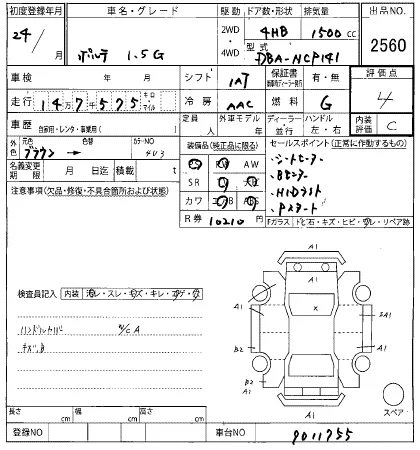 初度登録年月 車名・グレード 駆動 ドア数・形状 排気量 出品NO.
24/ 月 ポルテ 1.5G 2WD 4WD 4HB 1500 cc 2560
型式 DBA-NCP141
車検 年 月 シフト IAT 保証書 有・無 評価点 4
走行 147575 キロ・マイル 冷房 AAC 燃料 G
車歴 自家用・レンタ・事業用( ) 定員 人 外車モデル 年 ディーラー・並行 ハンドル 左・右 内装評価 C
外色 元色 ブラウン 色替 → カラーNO 4U3
装備品(純正品に限る) セールスポイント(正常に作動するもの)
名義変更期限 月 日迄 積載 t
AW
SR
カワ
R券 10210 円
・シートヒーター
・Bモニター
・HIDライト
・Pスタート
注意事項(欠品・修復・不具合箇所および状態)
Fガラス 飛石・キズ・ヒビ・ワレ・リペア跡
検査員記入 内装
ハンドルカバー
キズ、
A1
A1
X
A1
SA1
B2
A1
B2
A1
A1
スペア
長さ cm 幅 cm 高さ cm
登録NO 車台NO 9011755